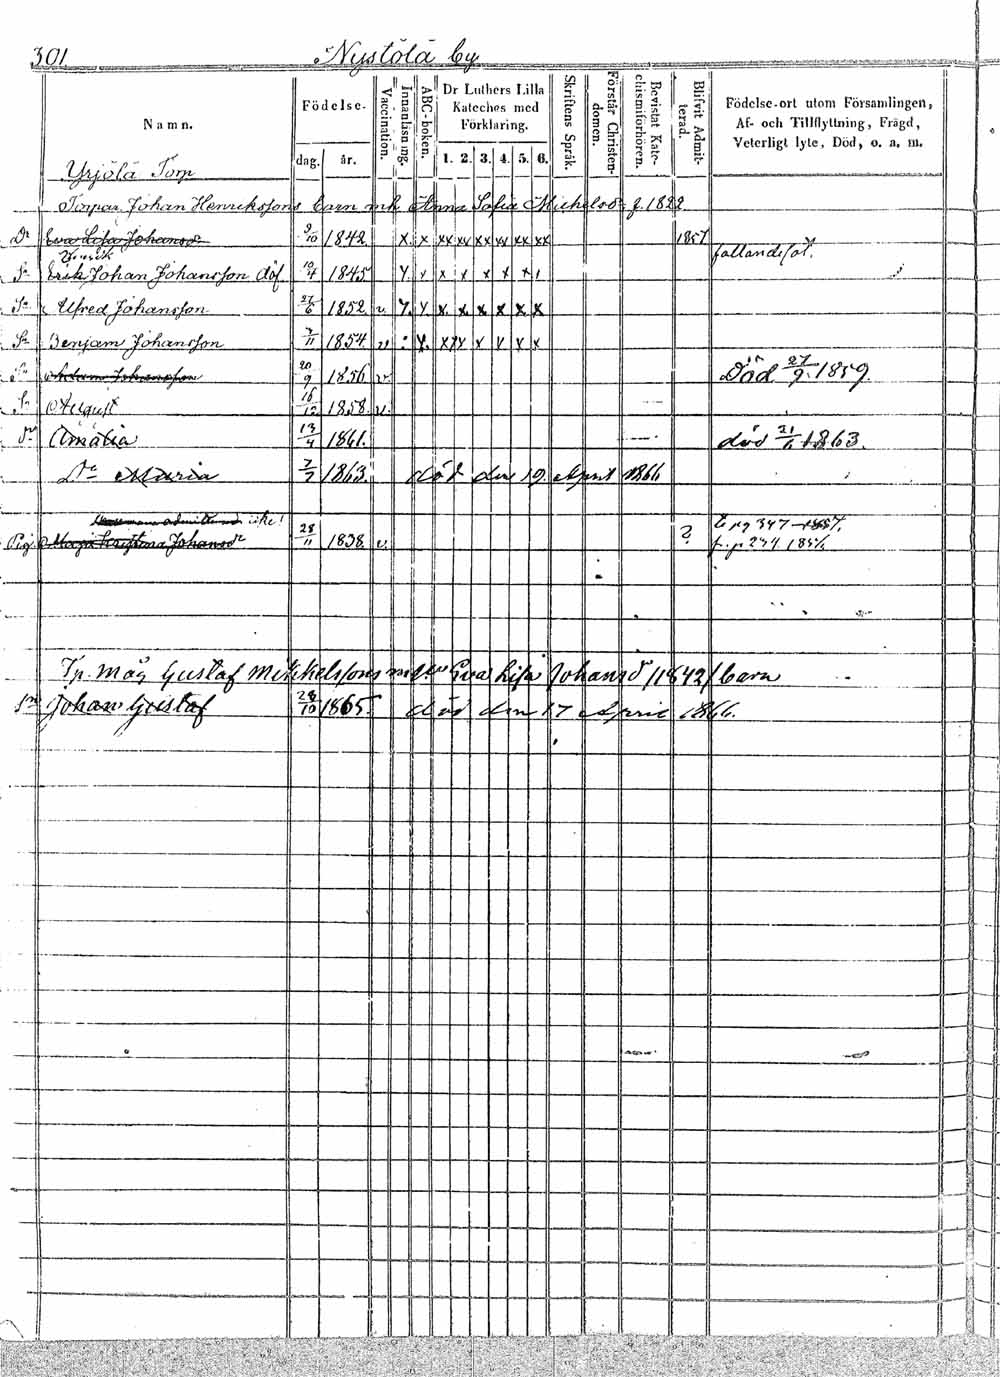 301 Nystölä by
Namn. Födelse- dag. år. Vaccination. Innanläsning. ABC-boken. Dr Luthers Lilla Kateches med Förklaring. 1. 2. 3. 4. 5. 6. Skriftens Språk. Förstår Christendomen. Bevistat Katechismiförhören. Blifvit Admitterad. Födelse-ort utom Församlingen, Af- och Tillflyttning, Frägd, Veterligt lyte, Död, o. a. m.
Yrjölä Torp
Torpar. Johan Henrikssons barn m h Anna Sofia Michelsdr f. 1822
Dr Eva Lisa Johansdr 9/10 1842 x x xx xx xx xx xx xx 1857
fallandesot.
Henrik
Sn Erik Johan Johansson döf 10/4 1845
Sn Alfred Johansson 27/6 1852 v. x x x x x x
Sn Benjam Johansson 7/11 1854 v
Sn Adam Johansson 20/9 1856 v. Död 27/9 1859.
Sn August 16/12 1858 v.
Dr Amalia 13/4 1861. död 21/6 1863.
Dr Maria 7/7 1863. död den 19 April 1866
icke!
Pig Maja Kristina Johansdr 28/11 1838 v. ? t. pg 347 1857.
f. p 234 185
Tp. måg Gustaf Mikkelssons m Eva Lisa Johansd /1842/ barn
Sn Johan Gustaf 28/10 1865. död den 17 April 1866.